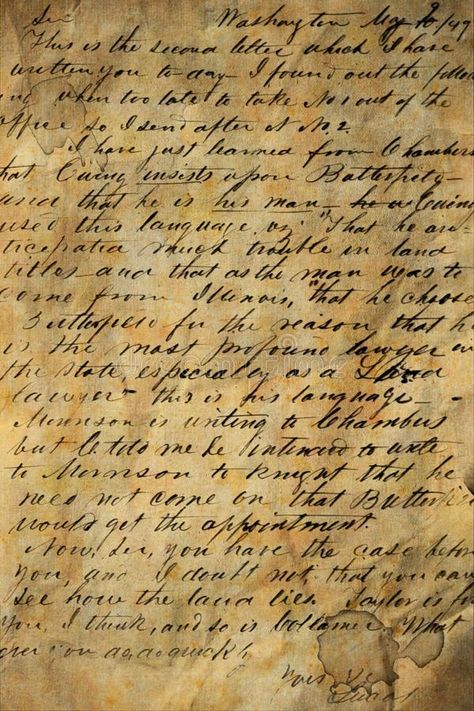 Sir Washington May 10/49
This is the second letter which I have
written you to-day - I found out the follow
ing when too late to take No 1 out of the
office so I send after it No. 2.
I have just learned from Chambers
that Ewing insists upon Butterfield -
and that he is his man - he Ewing
used this language, viz "That he an-
ticipated much trouble in land
titles and that as the man was to
come from Illinois, "that he choose
Butterfield for the reason that he
is the most profound lawyer in
the State, especially as a Land
lawyer" this is his language -
Morrison is writing to Chambers
but C told me he intended to write
to Morrison to that he
need not come on that Butterfield
would get the appointment.
Now, Sir, you have the case before
you, and I doubt not that you can
see how the land lies. Taylor is for
you, I think, and so is Collamer. What
on
Yours